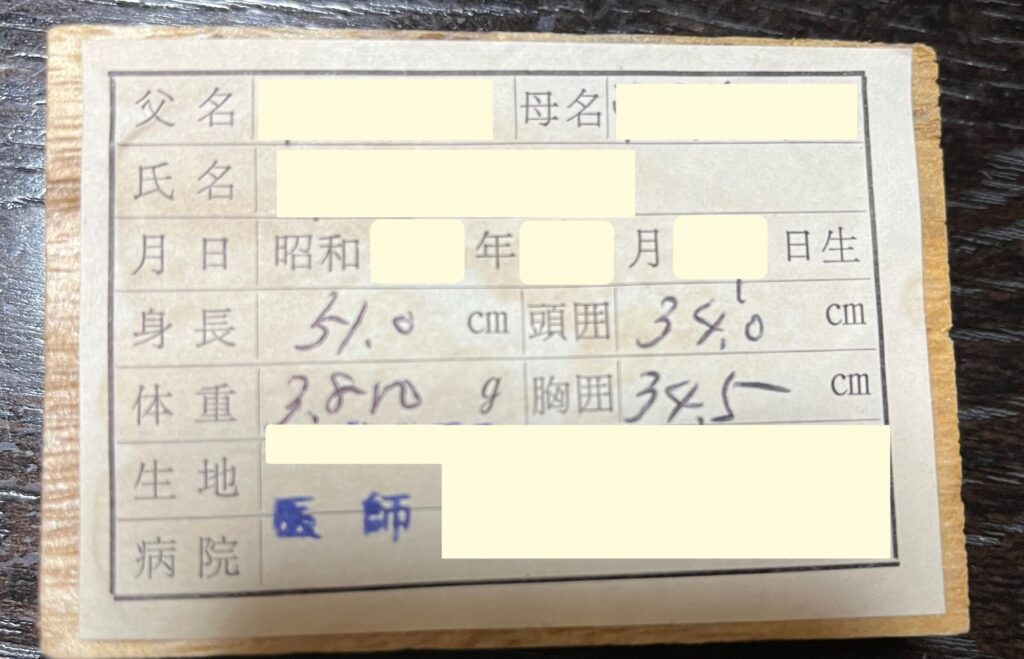 父名 母名
氏名
月日 昭和 年 月 日生
身長 51.0 cm 頭囲 34.0 cm
体重 g 胸囲 34.5 cm
生地
医師
病院